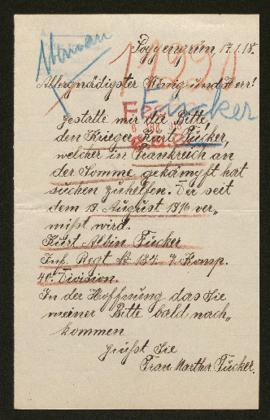 Poggengrün 17.1.18.
Allergnädigster König und Herr!
gestatte mir die Bitte,
den Krieger Kurt Fücker,
welcher in Frankreich an
der Somme gekämpft hat
suchen zuhelfen. Der seit
dem 13. August 1916 ver„
mißt wird.
Kurt Albin Fücker
Inf. Regt № 134 9. Komp.
40. Division.
In der Hoffnung das Sie
meiner Bitte bald nach„
kommen
grüßt Sie
Frau Martha Fücker.
Fücker